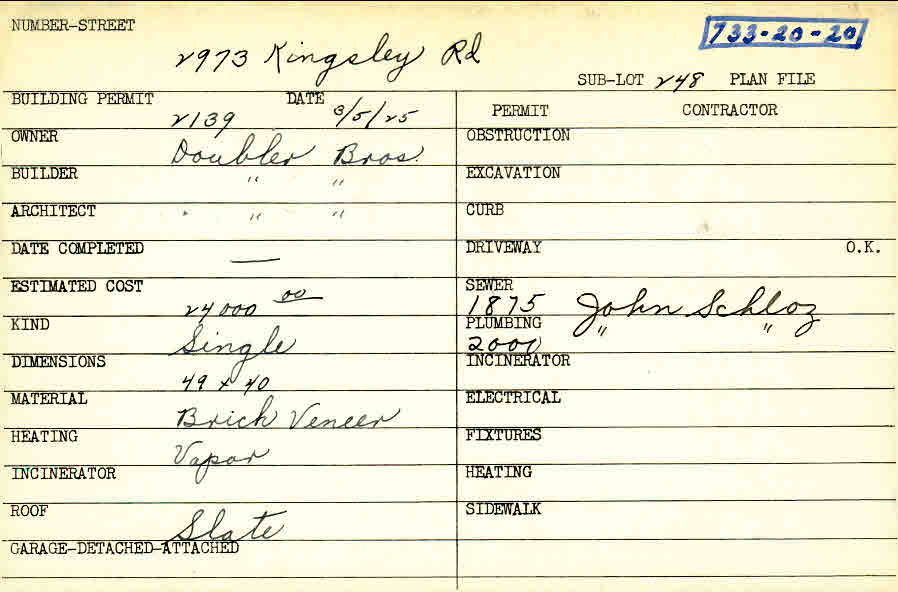 NUMBER-STREET
2973 Kingsley Rd
733-20-20
SUB-LOT 248 PLAN FILE
BUILDING PERMIT 2139 DATE 3/5/25
OWNER Doubler Bros.
BUILDER " "
ARCHITECT " "
DATE COMPLETED —
ESTIMATED COST 24000 00
KIND Single
DIMENSIONS 49 x 40
MATERIAL Brick Veneer
HEATING Vapor
INCINERATOR
ROOF Slate
GARAGE-DETACHED-ATTACHED
PERMIT CONTRACTOR
OBSTRUCTION
EXCAVATION
CURB
DRIVEWAY O.K.
SEWER 1875 John Schloz
PLUMBING 2000 " "
INCINERATOR
ELECTRICAL
FIXTURES
HEATING
SIDEWALK